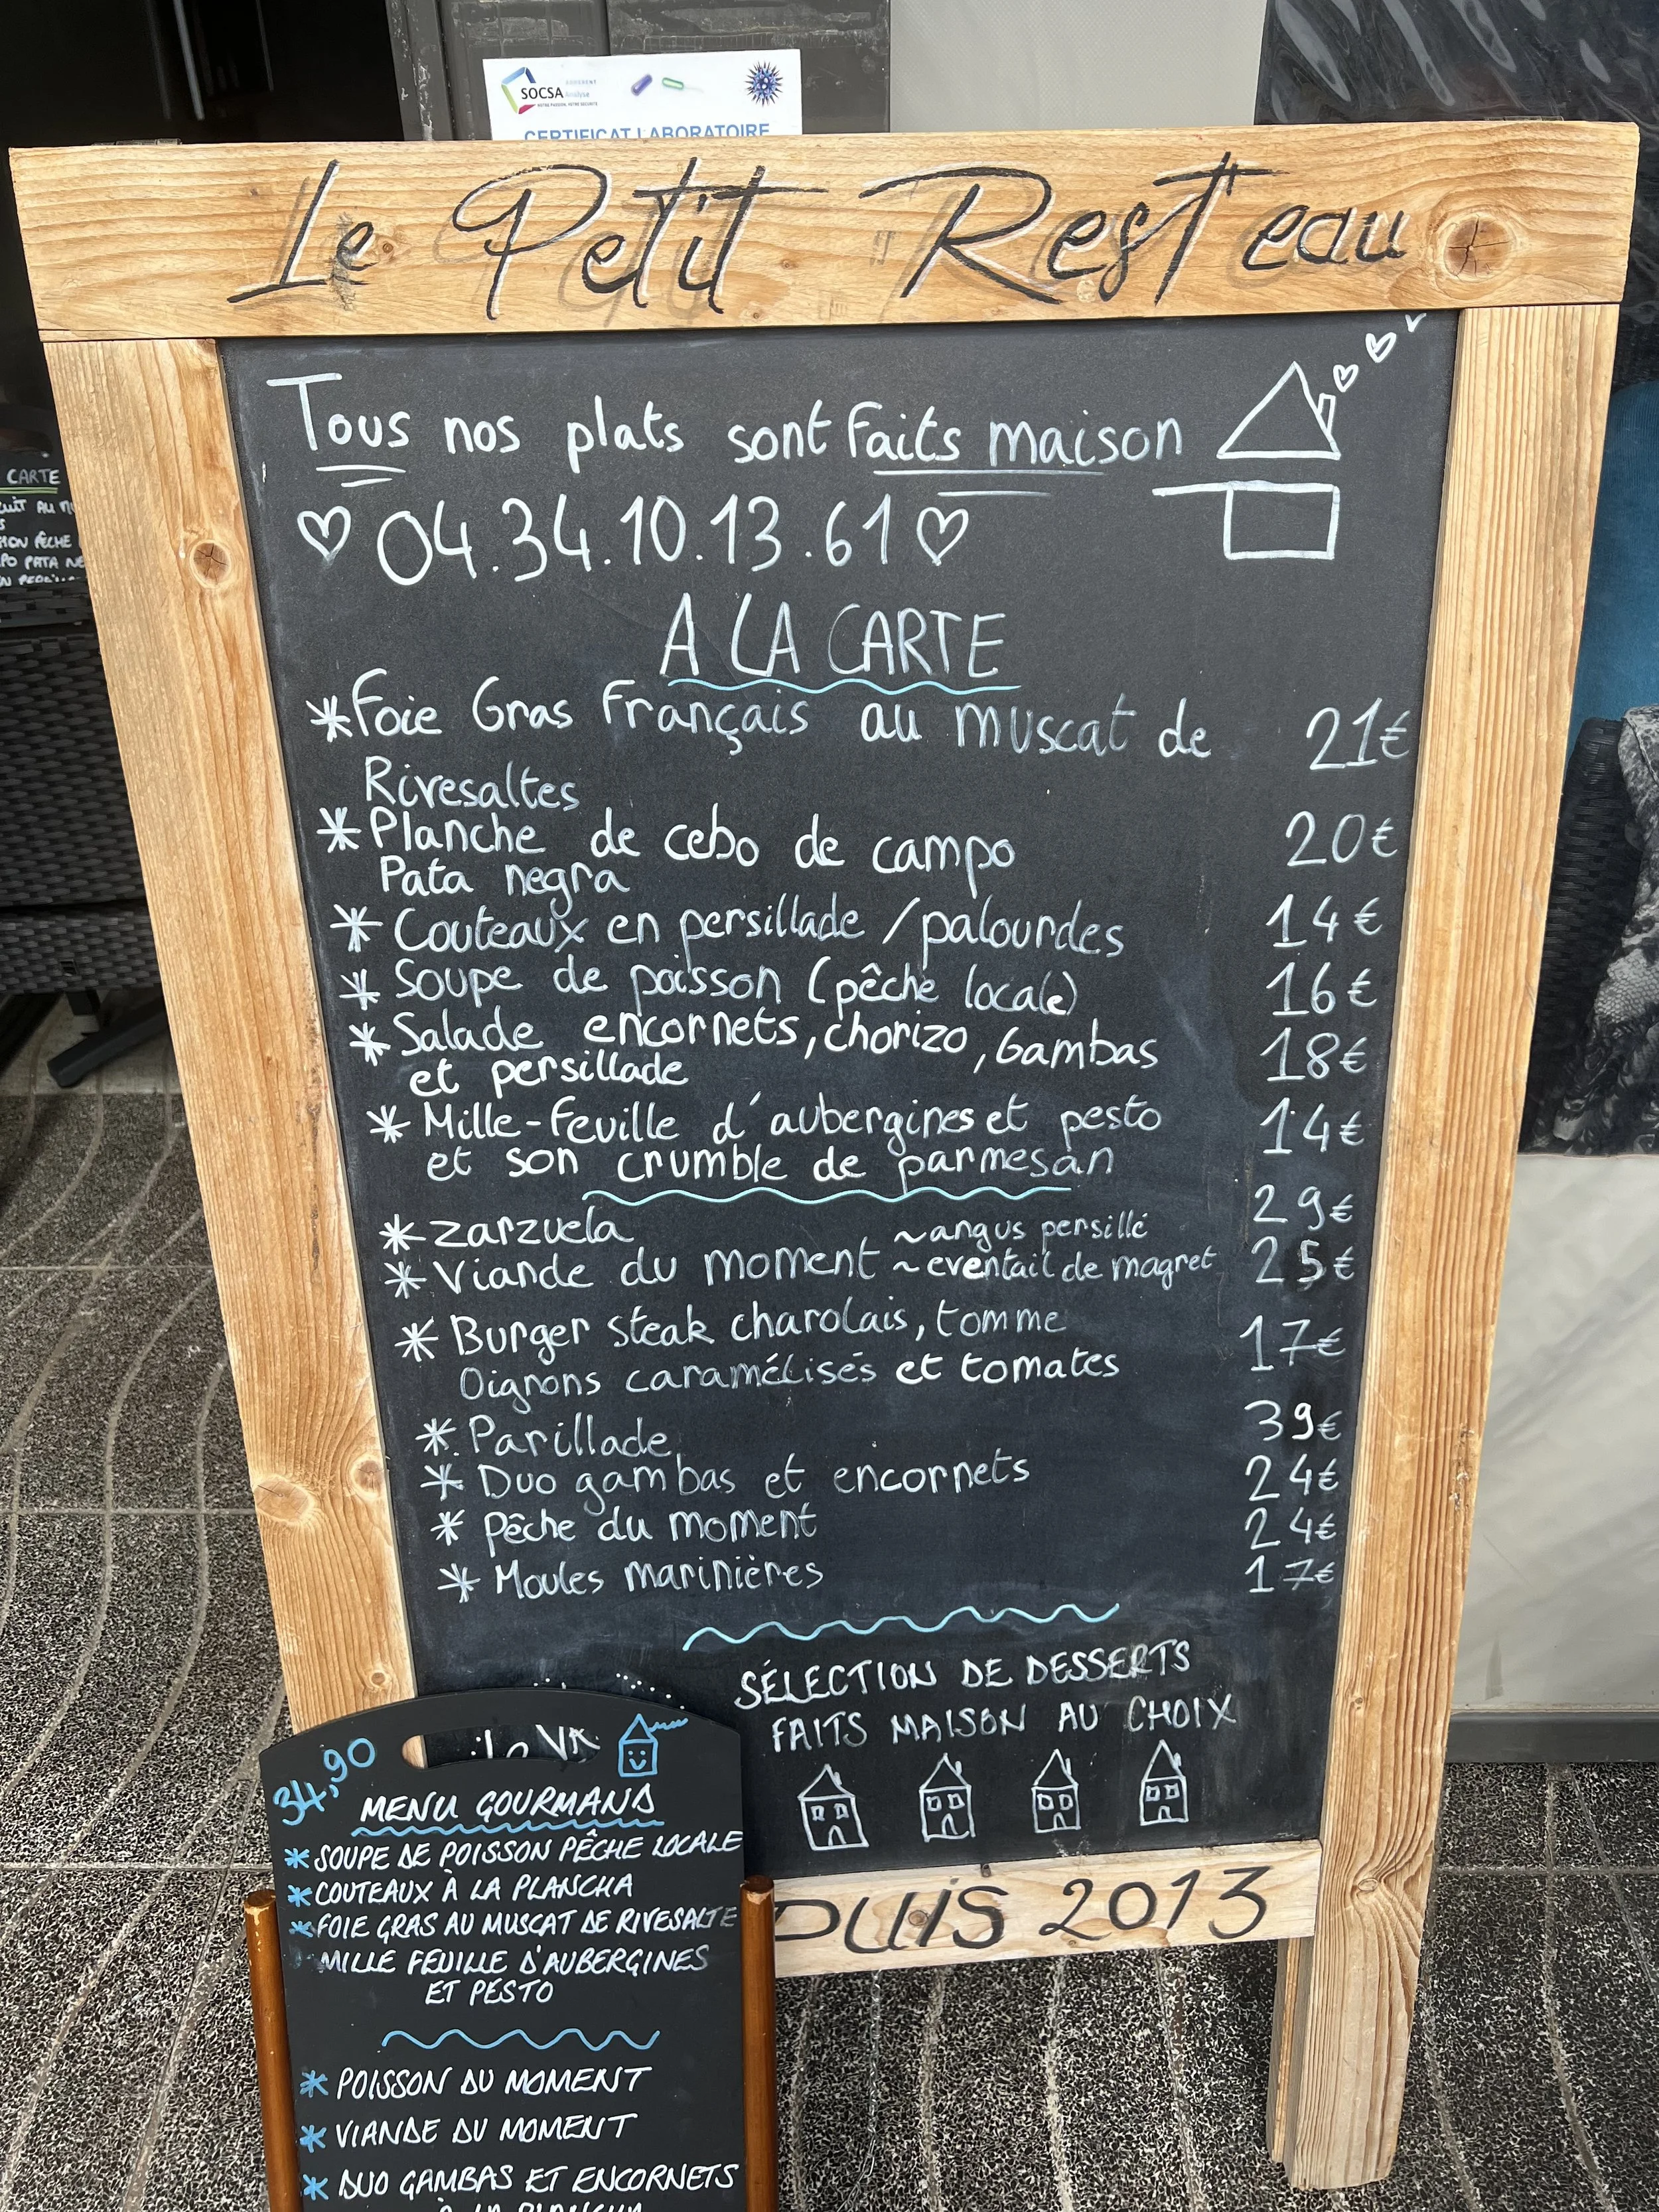 SOCSA Analyse
CERTIFICAT LABORATOIRE
Le Petit Rest'eau
Tous nos plats sont faits maison
04.34.10.13.61
A LA CARTE
*Foie Gras Français au muscat de 21€
Rivesaltes
*Planche de cebo de campo 20€
Pata negra
*Couteaux en persillade / palourdes 14€
*Soupe de poisson (pêche locale) 16€
*Salade encornets, chorizo, Gambas 18€
et persillade
*Mille-feuille d'aubergines et pesto 14€
et son crumble de parmesan
*Zarzuela 29€
~angus persillé
*Viande du moment ~eventail de magret 25€
*Burger steak charolais, tomme 17€
Oignons caramélisés et tomates
*Parillade 39€
*Duo gambas et encornets 24€
*Pêche du moment 24€
*Moules marinières 17€
SÉLECTION DE DESSERTS
FAITS MAISON AU CHOIX
PUIS 2013
34,90
MENU GOURMAND
*SOUPE DE POISSON PÊCHE LOCALE
*COUTEAUX À LA PLANCHA
*FOIE GRAS AU MUSCAT DE RIVESALTE
MILLE FEUILLE D'AUBERGINES
ET PESTO
*POISSON DU MOMENT
*VIANDE DU MOMENT
*DUO GAMBAS ET ENCORNETS
À LA PLANCHA
CARTE
PATA